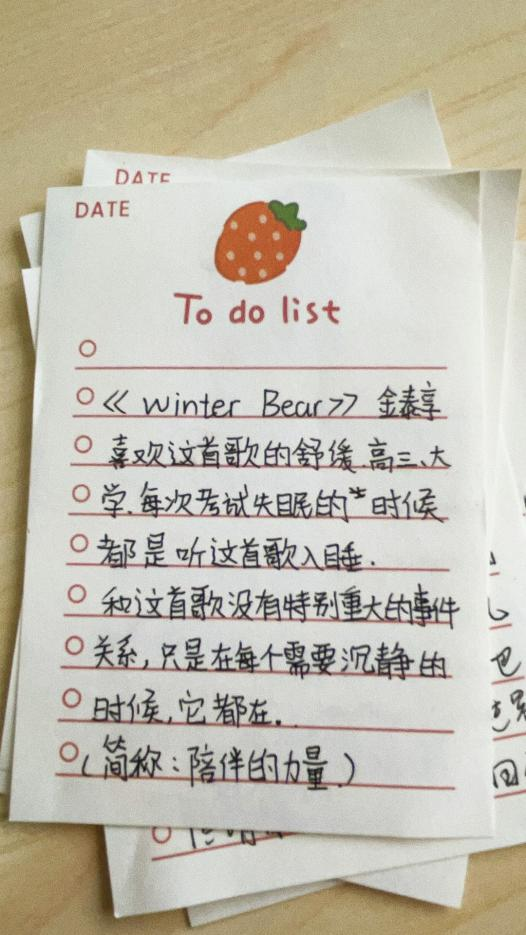 DATE
DATE
To do list
《 Winter Bear》 金泰亨
喜欢这首歌的舒缓.高三、大
学.每次考试失眠的时候
都是听这首歌入睡.
和这首歌没有特别重大的事件
关系,只是在每个需要沉静的
时候,它都在.
(简称:陪伴的力量.)